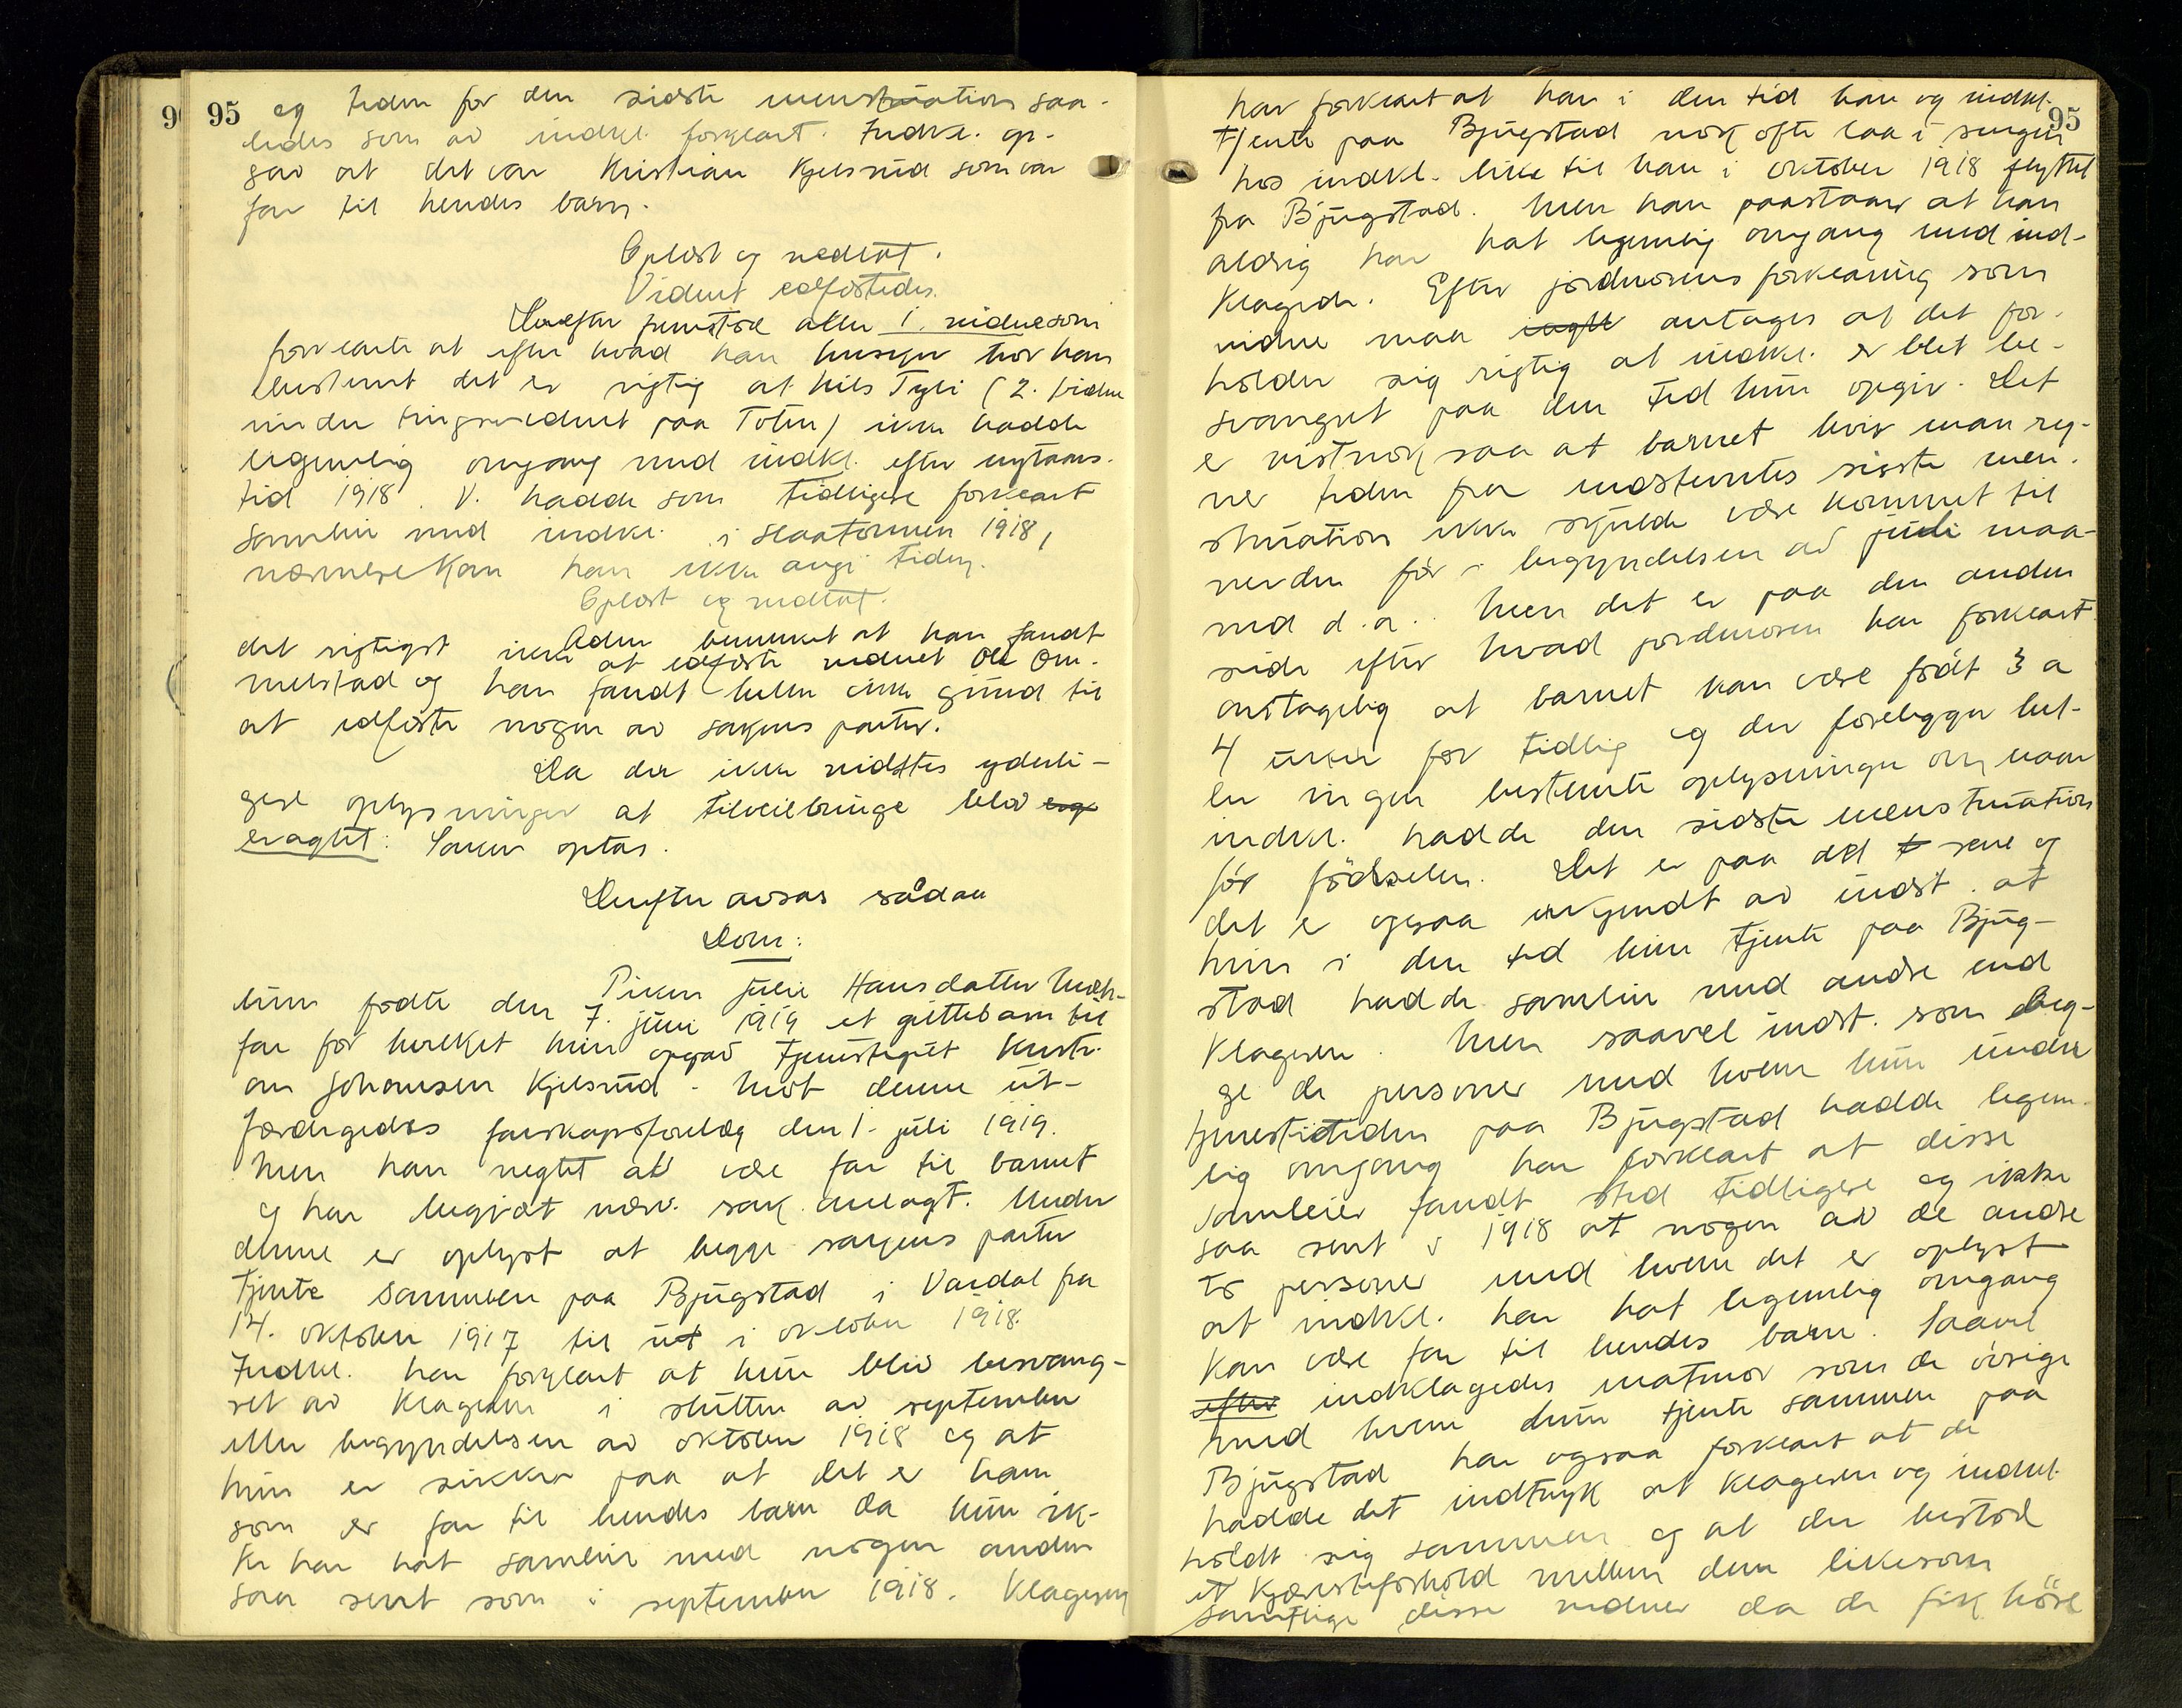 95 og tiden for den sidste menstruation saa-
ledes som av indkl. forklart. Indkl. op-
gav at det var Kristian Kjelsrud som var
far til hendes barn.
Oplæst og vedtat.
Vidnet edfæstedes.
Derefter fremstod atter 1. vidne som
forklarte at efter hvad han husker tror han
bestemt det er rigtig at Nils Tyli (2. vidne
under tingsvidnet paa Toten) ikke hadde
legemlig omgang med indkl. efter nytaars-
tid 1918. V. hadde som tidligere forklart
samleie med indkl. i slaatonnen 1918,
nærmere kan han ikke angi tiden.
Oplæst og vedtat.
Adm. bemerket at han fandt
det rigtigst ikke at edfæste vidnet Ole Om-
melstad og han fandt heller ikke grund til
at edfæste nogen av sakens parter.
Da der ikke vidstes yderli-
gere oplysninger at tilveiebringe blev
eragtet: Saken optas.
Derefter avsas sådan
Dom:
Piken Julie Hansdatter
hun fødte den 7. juni 1919 et guttebarn til
far for hvilket hun opgav tjenestegut Kristi-
an Johansen Kjelsrud. Mot denne ut-
færdigedes farskapsforelæg den 1. juli 1919.
Men han negtet at være far til barnet
og har begjært nærv. sak anlagt. Under
denne er oplyst at begge sakens parter
tjente sammen paa Bjugstad i Vardal fra
14. oktober 1917 til ut i oktober 1918.
Indkl. har forklart at hun blev besvang-
ret av klageren i slutten av september
eller begyndelsen av oktober 1918 og at
hun er sikker paa at det er ham
som er far til hendes barn da hun ik-
ke har hat samleie med nogen anden
saa sent som i september 1918. Klageren
95
har forklart at han i den tid han og indkl.
tjente paa Bjugstad nok ofte laa i sengen
hos indkl. like til han i oktober 1918 flyttet
fra Bjugstad. Men han paastaar at han
aldrig har hat legemlig omgang med ind-
klagede. Efter jordmorens forklaring som
vidne maa antages at det for-
holder sig rigtig at indkl. er blet be-
svangret paa den tid hun opgir. Det
er vistnok saa at barnet hvis man reg-
ner tiden fra indstevntes sidste men-
struation ikke skulde være kommet til
verden før i begyndelsen av juli maa-
ned d.a.. Men det er paa den anden
side efter hvad jordmoren har forklart
antagelig at barnet kan være født 3 a
4 uker for tidlig og der foreligger hel-
ler ingen bestemte oplysninger om naar
indkl. hadde den sidste menstruation
før fødselen. Det er paa det rene og
det er ogsaa erkjendt av indst. at
hun i den tid hun tjente paa Bjug-
stad hadde samleie med andre end
klageren. Men saavel indst. som beg-
ge de personer med hvem hun under
tjenestetiden paa Bjugstad hadde legem-
lig omgang har forklart at disse
samleier fandt sted tidligere og ikke
saa sent i 1918 at nogen av de andre
to personer med hvem det er oplyst
at indkl. har hat legemlig omgang
kan være far til hendes barn. Saavel
efter indklagedes matmor som de øvrige
med hvem hun tjente sammen paa
Bjugstad har ogsaa forklart at de
hadde det indtryk at klageren og indkl.
holdt sig sammen og at der bestod
et kjæresteforhold mellem dem likesom
samtlige disse vidner da de fik høre